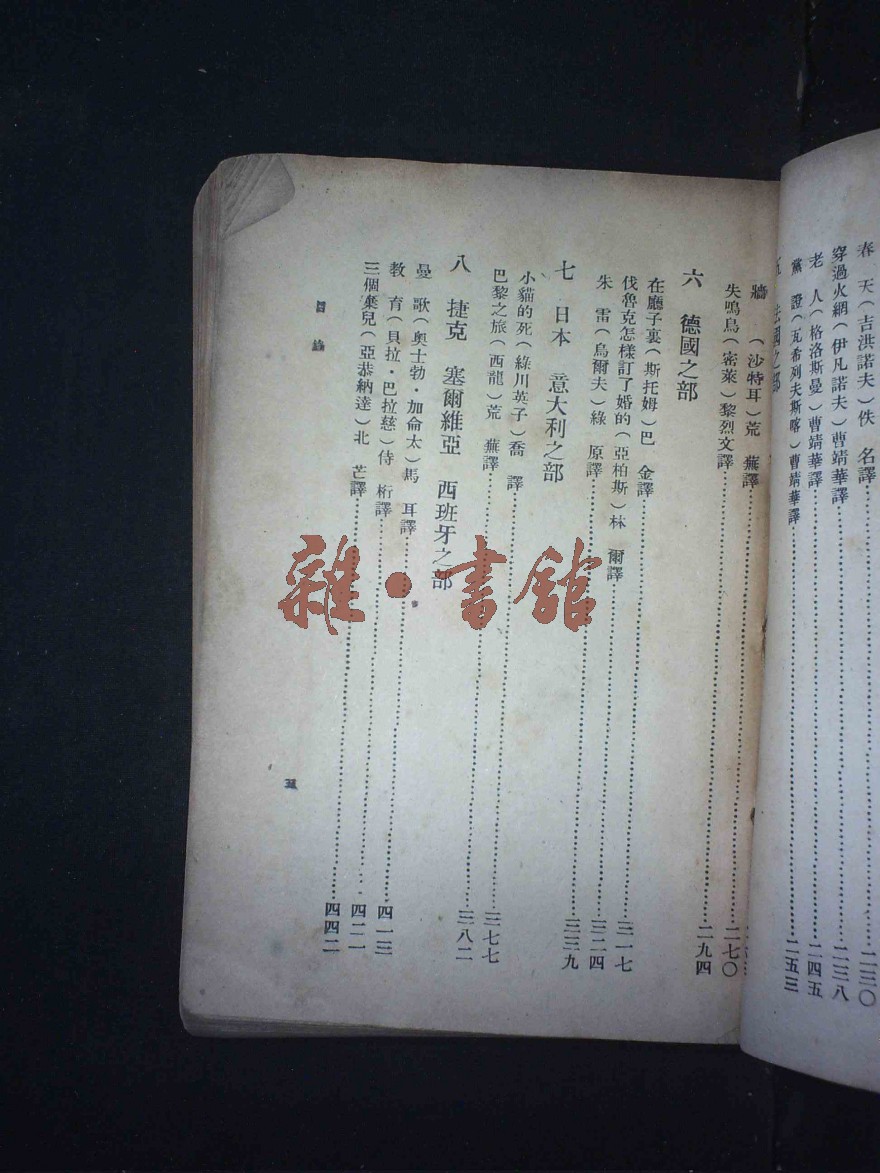 春　天（吉洪諾夫）佚　名譯……二三〇
穿過火網（伊凡諾夫）曹靖華譯……二三八
老　人（格洛斯曼）曹靖華譯……二四五
黨　證（瓦希列夫斯喀）曹靖華譯……二五三
五　法國之部
牆　（沙特耳）荒　蕪譯……二七〇
失鳴鳥（密萊）黎烈文譯……二九四
六　德國之部
在廳子裏（斯托姆）巴　金譯……三一七
伐魯克怎樣訂了婚的（亞柏斯）林　爾譯……三二四
朱　雷（烏爾夫）綠　原譯……三三九
七　日本　意大利之部
小貓的死（綠川英子）喬　譯……三七七
巴黎之旅（西龍）荒　蕪譯……三八二
八　捷克　塞爾維亞　西班牙之部
曼　歌（奧士勃·加侖太）馬　耳譯……四一三
教　育（貝拉·巴拉慈）侍　桁譯……四二一
三個棄兒（亞恭納達）北　芒譯……四四二
目　錄
五
雜·書館